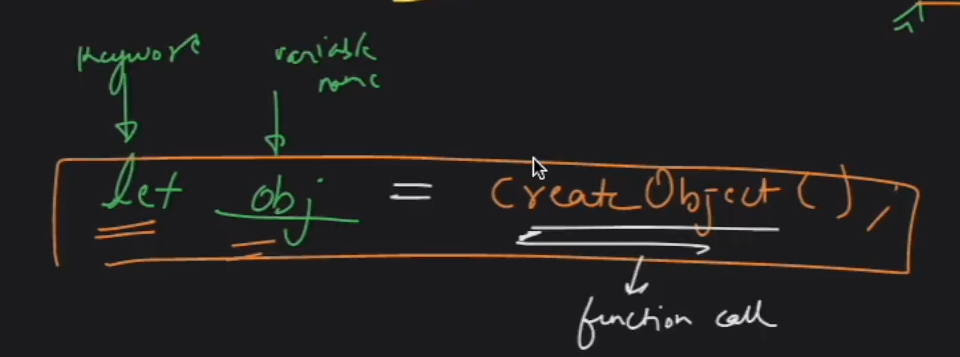 keyword
variable
name
let obj = createObject();
function call